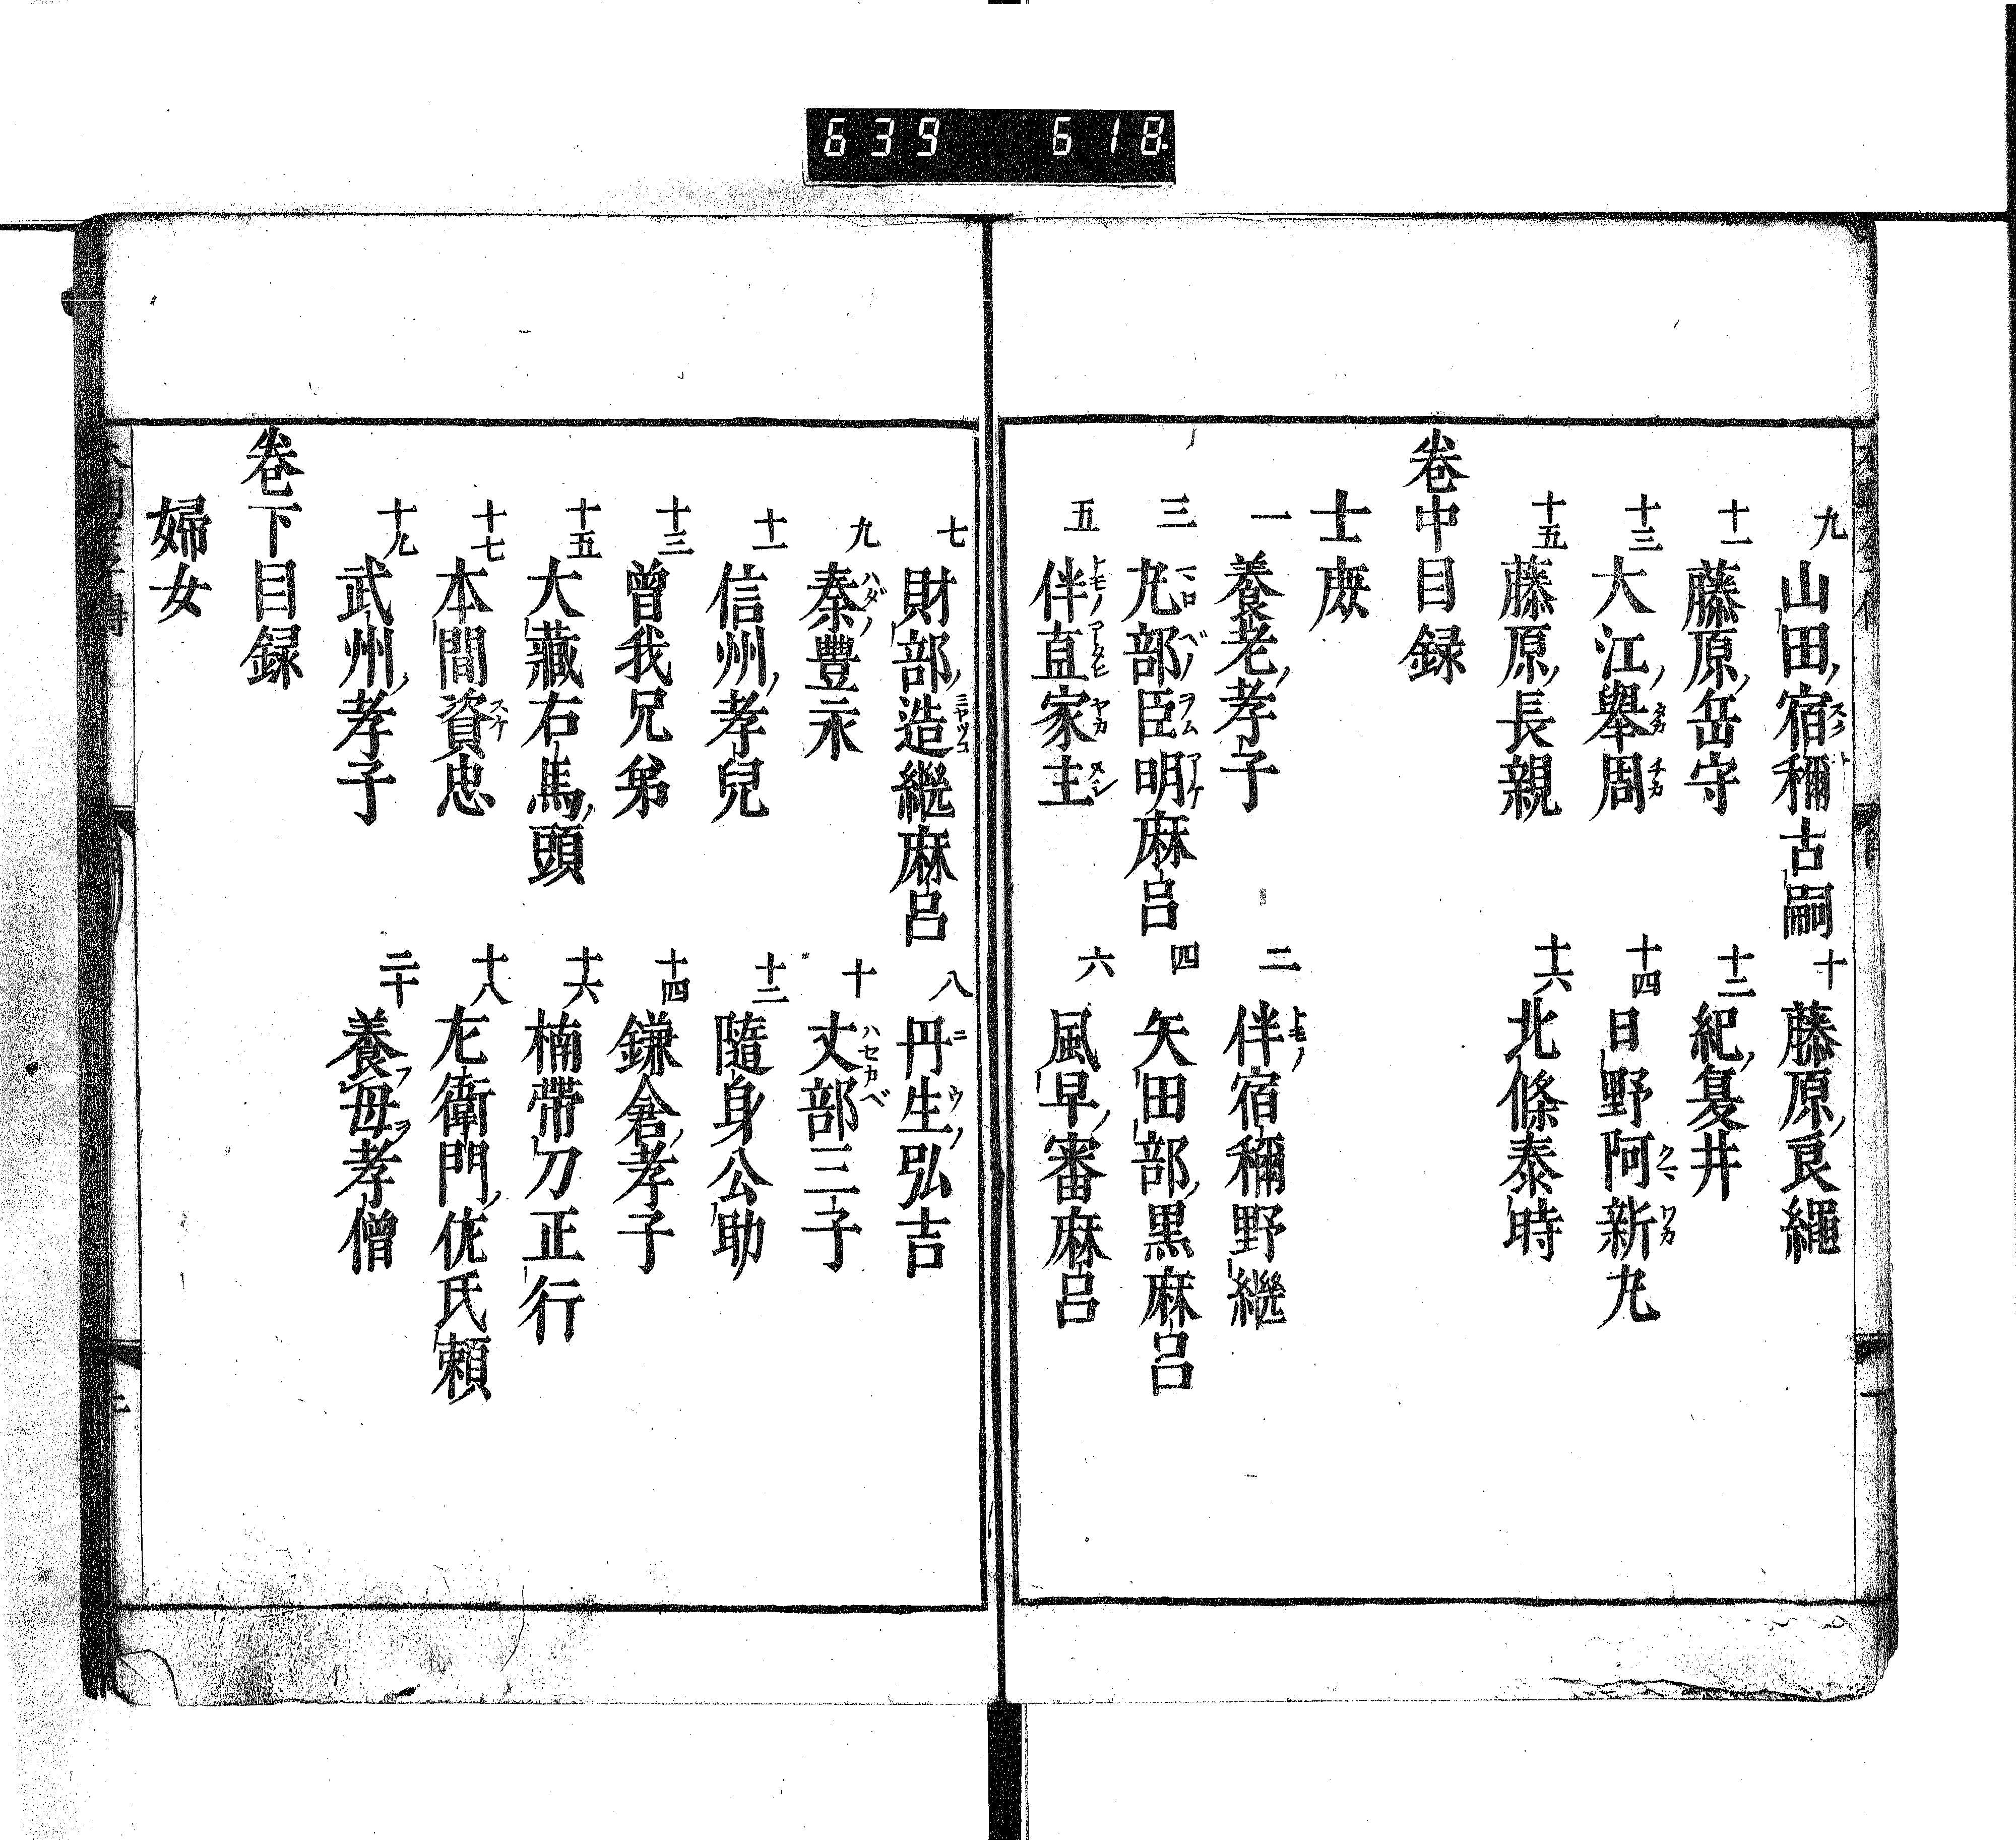 639 618
九 山田ノ宿禰古嗣 十 藤原ノ良繩
十一 藤原ノ岳守 十二 紀ノ夏井
十三 大江ノ舉周 十四 日野阿新丸
十五 藤原ノ長親 十六 北條泰時
卷中目録
士庶
一 養老ノ孝子 二 伴宿禰野継
三 丸部臣明麻呂 四 矢田部ノ黒麻呂
五 伴直家主 六 風早ノ審麻呂
七 財部ノ造継麻呂 八 丹生弘吉
九 秦豊永 十 丈部三子
十一 信州ノ孝兒 十二 隨身公助
十三 曾我兄弟 十四 鎌倉ノ孝子
十五 大藏右馬ノ頭 十六 楠帶刀正行
十七 本間資忠 十八 左衛門ノ佐氏頼
十九 武州ノ孝子 二十 養フ母ヲ孝僧
卷下目録
婦女